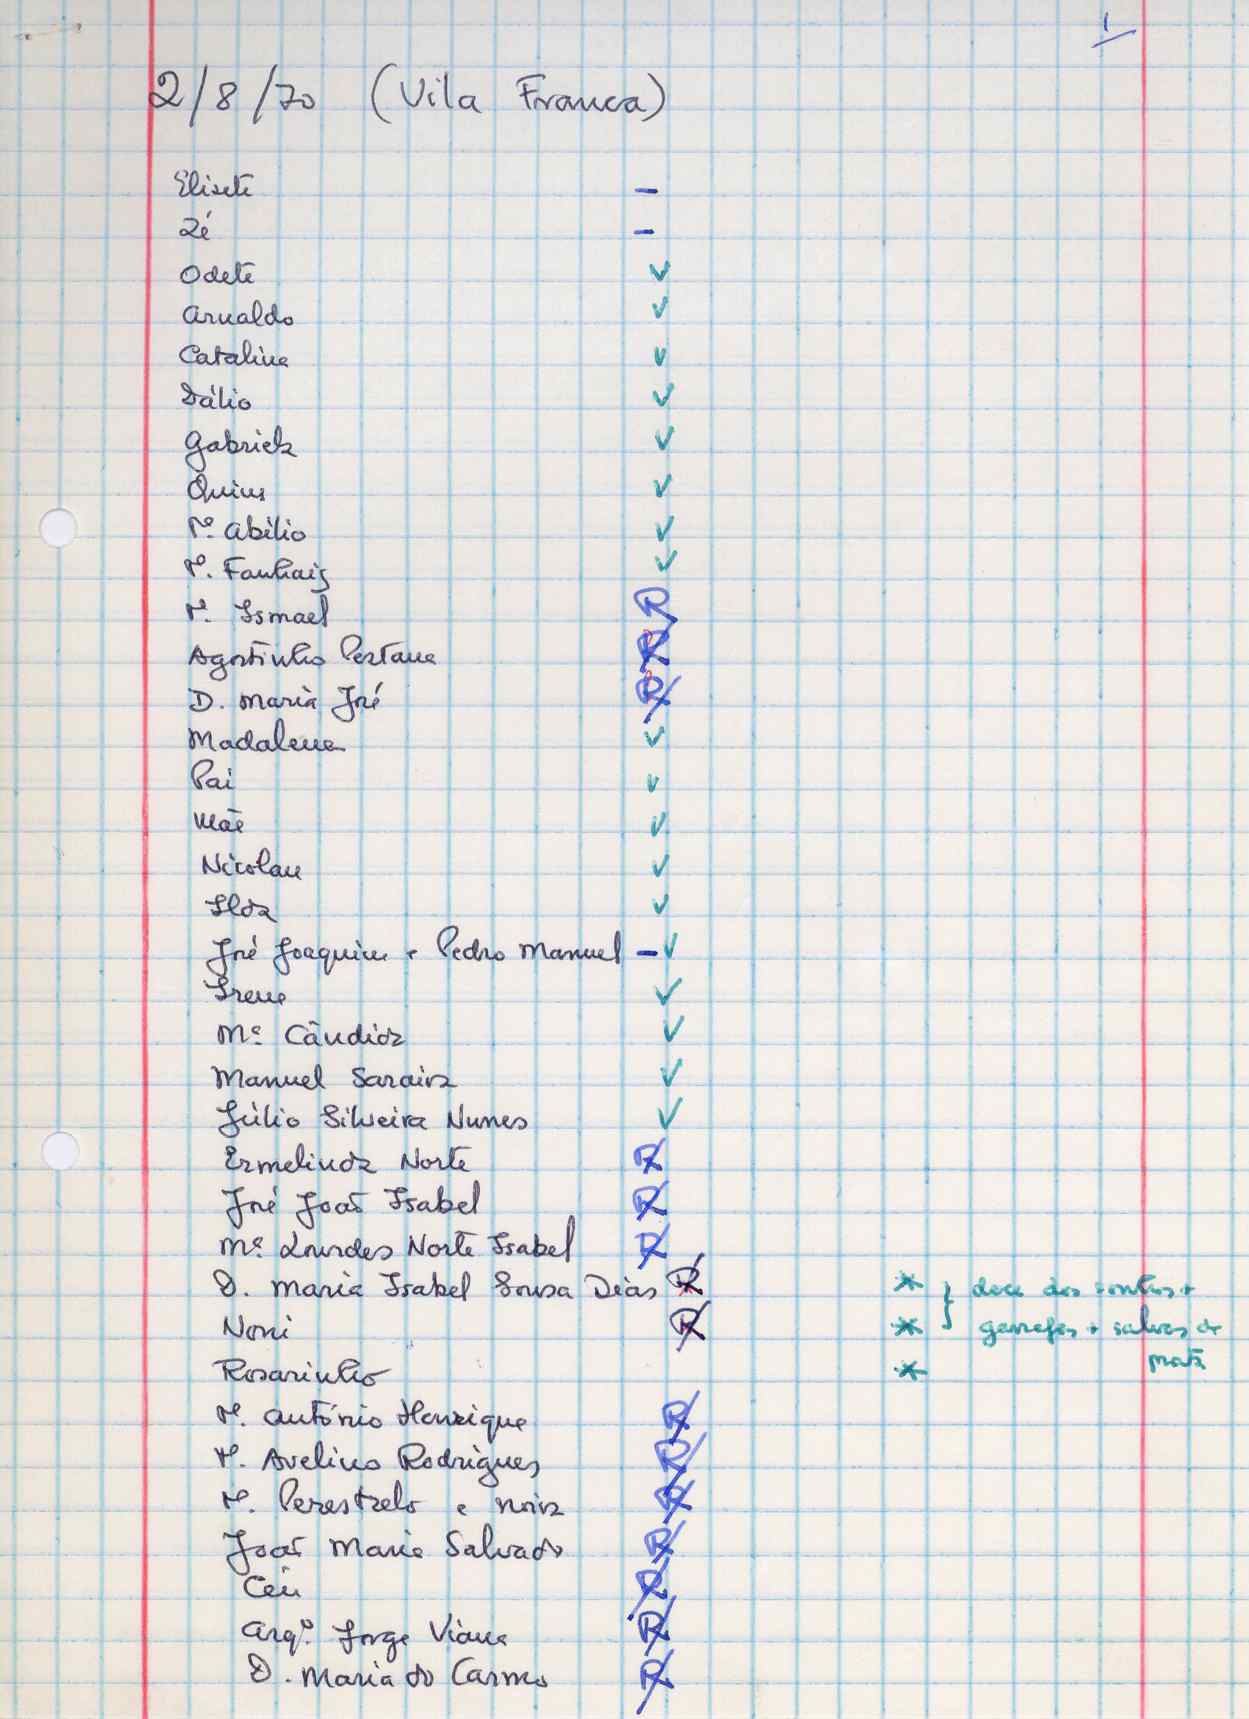 1
2/8/70 (Vila Franca)
Elisete –
Zé –
Odete ✓
Arnaldo ✓
Catalina ✓
Dálio ✓
Gabriela ✓
✓
Pe. Abílio ✓
P. Fanhais ✓
P. Ismael R
Agostinho Pestana R
D. Maria José R
Madalena ✓
Pai ✓
Mãe ✓
Nicolau ✓
Ilda ✓
José Joaquim e Pedro Manuel – ✓
Irene ✓
Mª Cândida ✓
Manuel Saraiva ✓
Júlio Silveira Nunes ✓
Ermelinda Norte R
José João Isabel R
Mª Lourdes Norte Isabel R
D. Maria Isabel Sousa Dias R * } doce dos +
Noni R * garrafas + salvas de
Rosarinho * prata
P. António Henrique R
P. Avelino Rodrigues R
P. Perestrelo e noiva R
João Maria Salvado R
Céu R
Arqº. Jorge Viana R
D. Maria do Carmo R